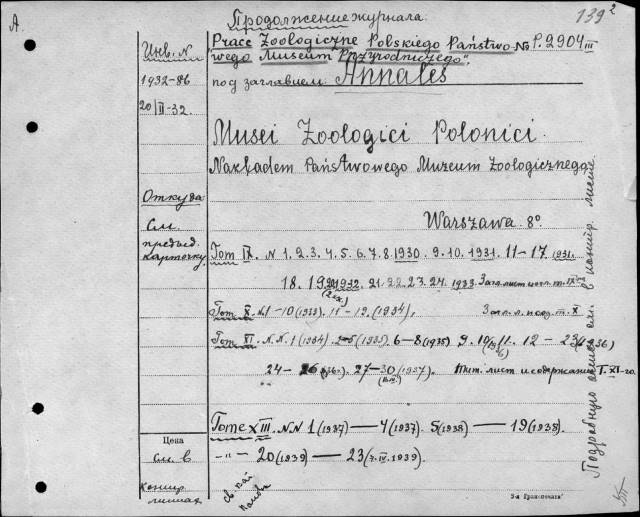 А.
Продолжение журнала:
139²
Инв. N
Prace Zoologiczne Polskiego Państwo- No P.2904 III
wego Museum Przyrodniczego".
1932-86
под заглавием: Annales
20/II-32.
Musei Zoologici Polonici.
Nakładem Państwowego Muzeum Zoologicznego
Откуда
См.
предыд.
карточку.
Warszawa 8º
Том IX. N 1. 2. 3. 4. 5. 6. 7. 8. 1930. 9. 10. 1931. 11-17 1931.
18. 19. 20 1932. 21. 22. 23. 24. 1933. Загл. лист
(2 ex.)
Том X. N 1-10 (1933). 11-12. (1934), Загл. л. XI
Том XI. N.N. 1 (1934). 2-5 (1935). 6-8 (1935) 9. 10. 11. 12 - 23 (1936)
(1936)
24- 26 (1936). 27-30 (1937). Тит. лист и содержание Т. XI-го.
Tome XIII. N N 1 (1937) — 4 (1937). 5 (1938) — 19 (1938).
Цена
см. в
-"- — 20 (1939) — 23 (7.IV.1939).
контр.
листах
Подробную опись см. в контр. листе.